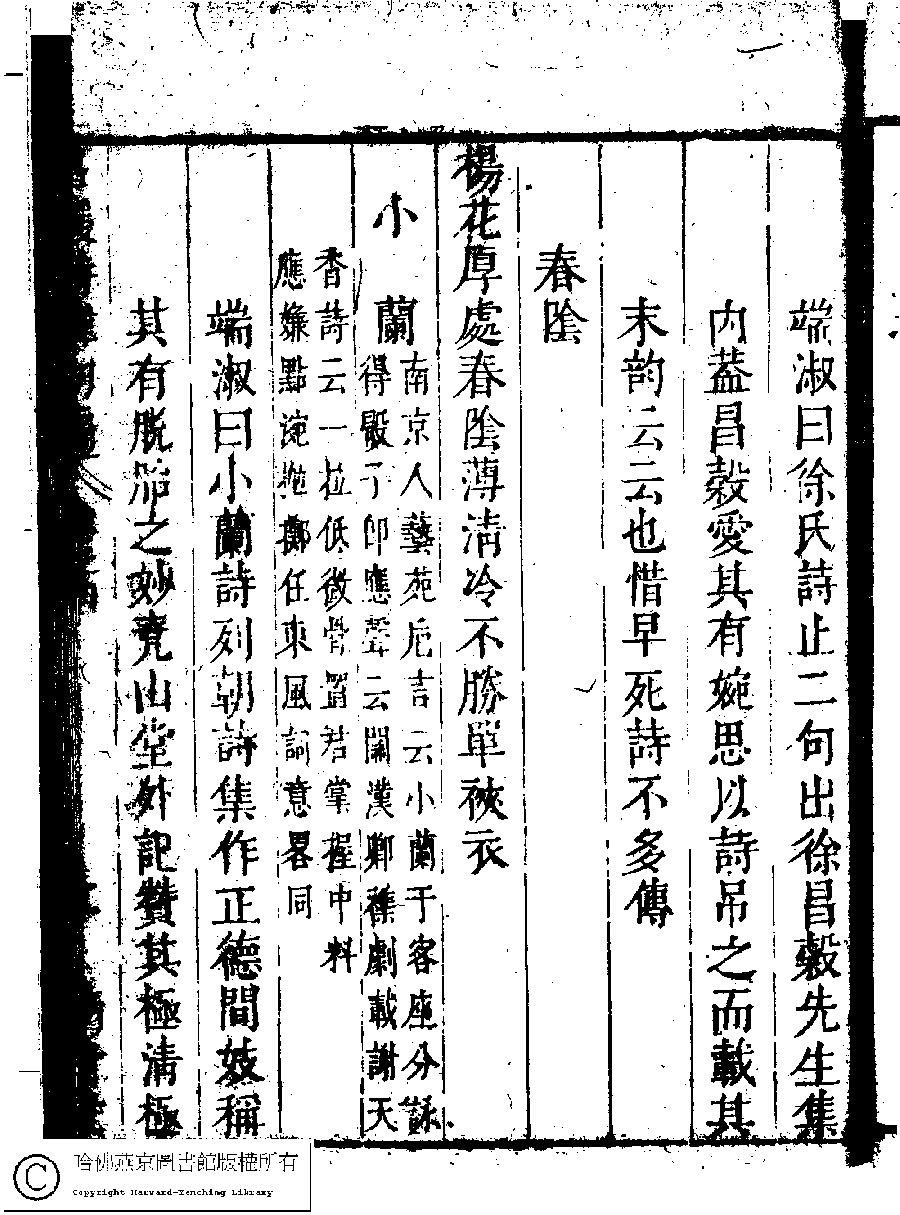 端淑曰徐氏詩止二句出徐昌穀先生集
內蓋昌穀愛其有婉思以詩吊之而載其
末韵云云也惜早死詩不多傳
春陰
楊花厚處春陰薄清冷不勝單裌衣
小蘭
南京人藝苑卮言云小蘭于客座分詠
得骰子即應聲云關漢卿雜劇載謝天
香詩云一拉低微骨置君掌握中料
應嫌點涴拋擲任東風詞意畧同
端淑曰小蘭詩列朝詩集作正德間妓稱
其有脫胎之妙堯山堂外記贊其極清極
哈佛燕京圖書館版權所有
Copyright Harvard-Yenching Library